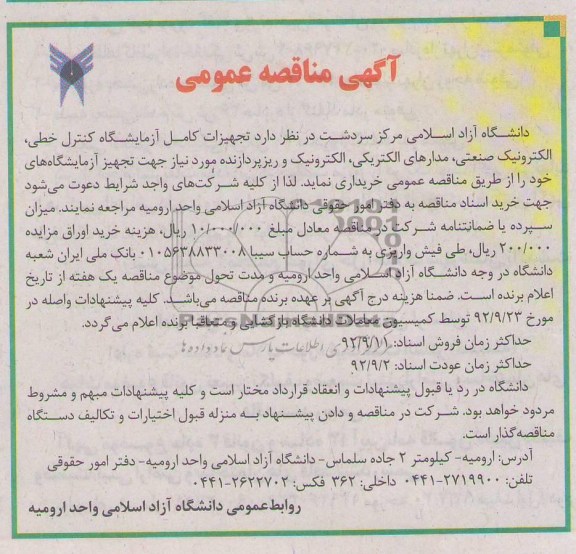 آگهی مناقصه عمومی
دانشگاه آزاد اسلامی مرکز سردشت در نظر دارد تجهیزات کامل آزمایشگاه کنترل خطی،
الکترونیک صنعتی، مدارهای الکتریکی، الکترونیک و ریزپردازنده مورد نیاز جهت تجهیز آزمایشگاه‌های
خود را از طریق مناقصه عمومی خریداری نماید. لذا از کلیه شرکت‌های واجد شرایط دعوت می‌شود
جهت خرید اسناد مناقصه به دفتر امور حقوقی دانشگاه آزاد اسلامی واحد ارومیه مراجعه نمایند. میزان
سپرده یا ضمانتنامه شرکت در مناقصه معادل مبلغ ۱۰/۰۰۰/۰۰۰ ریال، هزینه خرید اوراق مزایده
۲۰۰/۰۰۰ ریال، طی فیش واریزی به شماره حساب سیبا ۰۱۰۵۶۳۸۸۳۳۰۰۸ بانک ملی ایران شعبه
دانشگاه در وجه دانشگاه آزاد اسلامی واحد ارومیه و مدت تحول موضوع مناقصه یک هفته از تاریخ
اعلام برنده است. ضمنا هزینه درج آگهی بر عهده برنده مناقصه می‌باشد. کلیه پیشنهادات واصله در
مورخ ۹۲/۹/۲۳ توسط کمیسیون معاملات دانشگاه بازگشایی و متعاقبا برنده اعلام می‌گردد.
حداکثر زمان فروش اسناد: ۹۲/۹/۱۱
حداکثر زمان عودت اسناد: ۹۲/۹/۲
دانشگاه در رد یا قبول پیشنهادات و انعقاد قرارداد مختار است و کلیه پیشنهادات مبهم و مشروط
مردود خواهد بود. شرکت در مناقصه و دادن پیشنهاد به منزله قبول اختیارات و تکالیف دستگاه
مناقصه‌گذار است.
آدرس: ارومیه- کیلومتر ۲ جاده سلماس- دانشگاه آزاد اسلامی واحد ارومیه- دفتر امور حقوقی
تلفن: ۲۷۱۹۹۰۰-۰۴۴۱ داخلی: ۳۶۲ فکس: ۲۶۲۲۷۰۲-۰۴۴۱
روابط‌عمومی دانشگاه آزاد اسلامی واحد ارومیه